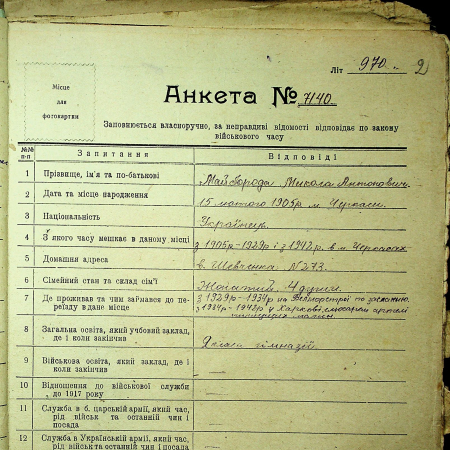 Літ 970. 2
Місце
для
фотокартки
Анкета № 7140.
Заповнюється власноручно, за неправдиві відомості відповідає по закону
військового часу
№№ п-п Запитання Відповіді
1 Прізвище, ім'я та по-батькові Майборода Микола Антонович.
2 Дата та місце народження 15 лютого 1905р. м. Черкаси.
3 Національність Українець.
4 З якого часу мешкає в даному місці з 1905р-1929р і з 1942р. в м. Черкасах
5 Домашня адреса в. Шевченка № 273.
6 Сімейний стан та склад сім'ї Жонатий. 4 душі.
7 Де проживав та чим займався до пе-
реїзду в дане місце
з 1929р-1934р на
з 1934р-1942р у Харкові слюсарем артілі
8 Загальна освіта, який учбовий заклад,
де і коли закінчив
класів гімназії
9 Військова освіта, який заклад, де і
коли закінчив
10 Відношення до військової служби
до 1917 року
11 Служба в б. царській армії, який час,
рід військ та останній чин і
посада
12 Служба в Українській армії, який час,
рід військ та останній чин і посада